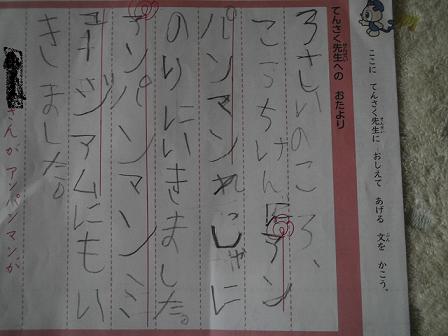 ここに てんさく先生に おしえて あげる 文を かこう。
てんさく先生への おたより
ろさいのころ、
こうちけんにアン
パンマンれっしゃに
のりにいきました。
アンパンマンミ
ュージアムにもい
きました。
さんがアンパンマンが